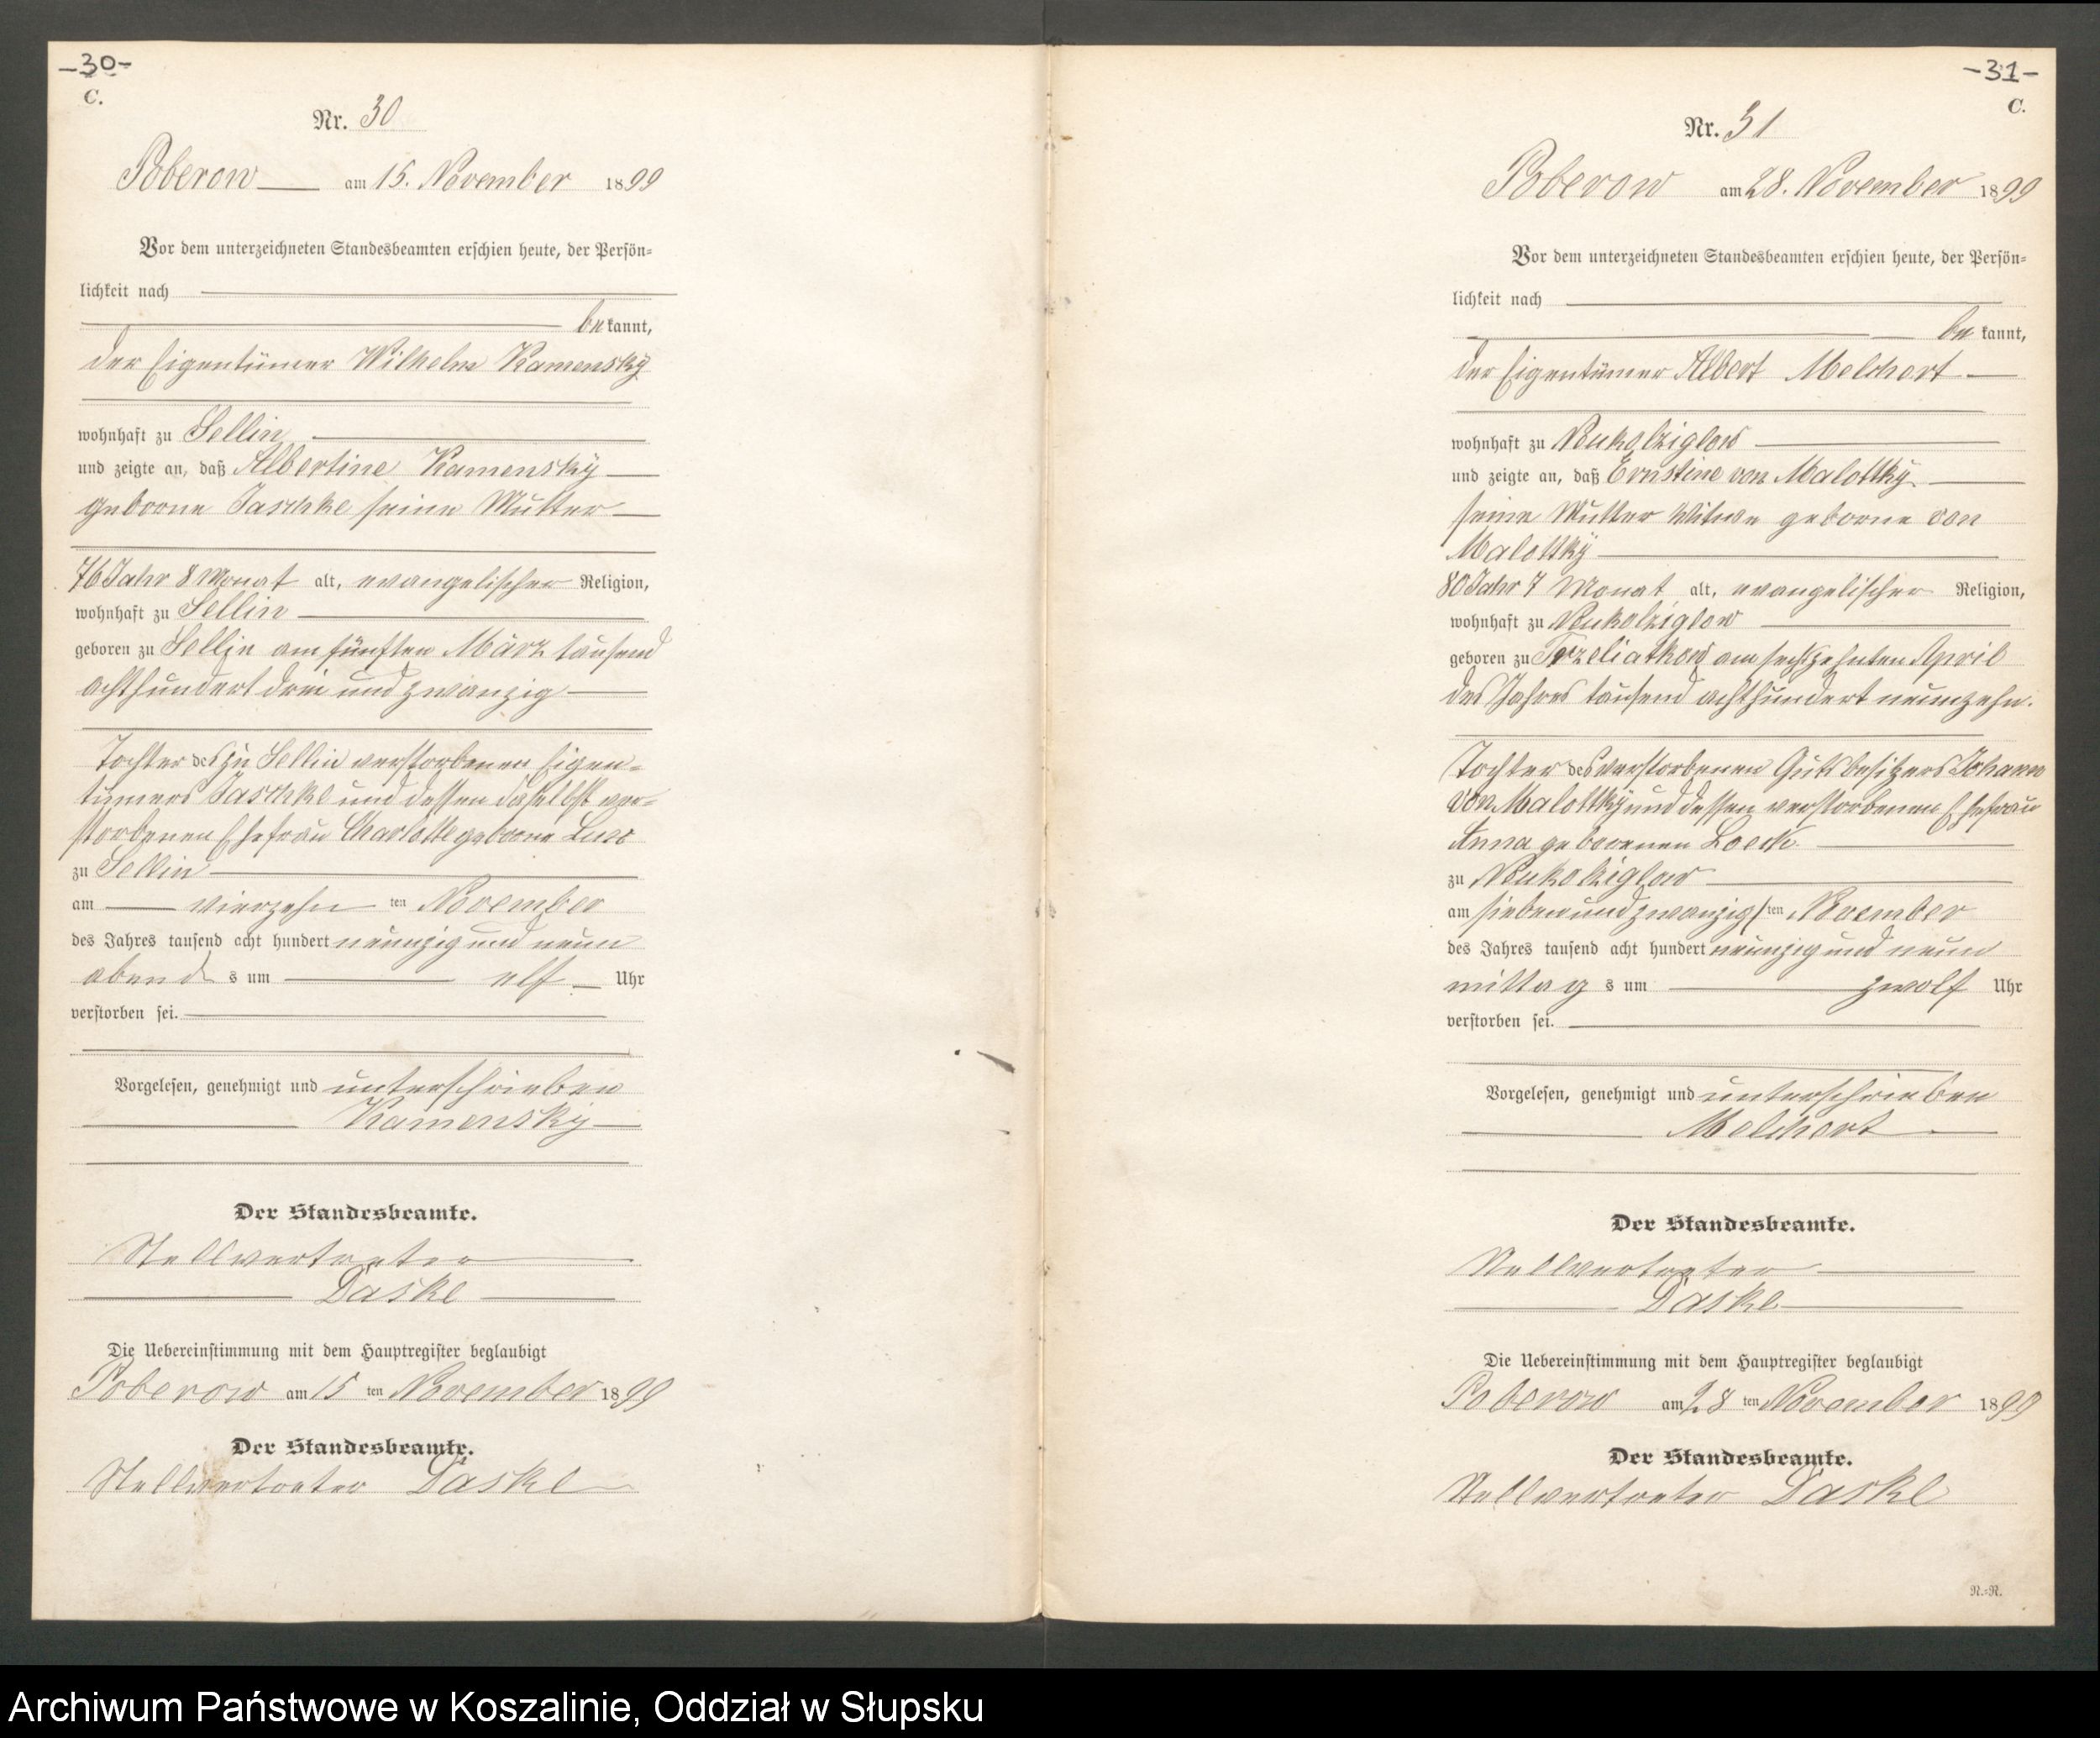 -30-
C.
Nr. 30
Poberow am 15. November 1899
Vor dem unterzeichneten Standesbeamten erschien heute, der Persön-
lichkeit nach
bekannt,
der Eigentümer Wilhelm Kamensky
wohnhaft zu Sellin
und zeigte an, daß Albertine Kamensky
geborne Jaschke seine Mutter
76 Jahr 8 Monat alt, evangelischer Religion,
wohnhaft zu Sellin
geboren zu Sellin am fünften März tausend
achthundert drei und zwanzig
Tochter des zu Sellin verstorbenen Eigen-
tümers Jaschke und dessen daselbst ver-
storbenen Ehefrau Charlotte geborne
zu Sellin
am vierzehn ten November
des Jahres tausend acht hundert neunzig und neun
abends um elf Uhr
verstorben sei.
Vorgelesen, genehmigt und unterschrieben
Kamensky
Der Standesbeamte.
Stellvertreter
Daske
Die Uebereinstimmung mit dem Hauptregister beglaubigt
Poberow am 15 ten November 1899
Der Standesbeamte.
Stellvertreter Daske
-31-
C.
Nr. 31
Poberow am 28. November 1899
Vor dem unterzeichneten Standesbeamten erschien heute, der Persön-
lichkeit nach
bekannt,
der Eigentümer Albert Melchert
wohnhaft zu Neukolziglow
und zeigte an, daß Ernstine von Malottky
seine Mutter Witwe geborne von
Malottky
80 Jahr 7 Monat alt, evangelischer Religion,
wohnhaft zu Neukolziglow
geboren zu am sechszehnten April
des Jahres tausend achthundert neunzehn.
Tochter des verstorbenen Gutsbesitzers Johann
von Malottky und dessen verstorbenen Ehefrau
Anna geborenen
zu Neukolziglow
am siebenundzwanzigsten November
des Jahres tausend acht hundert neunzig und neun
mittags um zwölf Uhr
verstorben sei.
Vorgelesen, genehmigt und unterschrieben
Melchert
Der Standesbeamte.
Stellvertreter
Daske
Die Uebereinstimmung mit dem Hauptregister beglaubigt
Poberow am 28 ten November 1899
Der Standesbeamte.
Stellvertreter Daske
N.-N.
Archiwum Państwowe w Koszalinie, Oddział w Słupsku